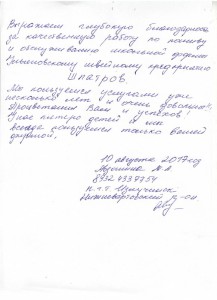 Выражаем глубокую благодарность
за качественную работу по пошиву
и обслуживанию школьной формы
Ульяновскому швейному предприятию
Шпатров
Мы пользуемся услугами уже
несколько лет и очень довольны.
Процветания Вам и успехов!
У нас пятеро детей и мы
всегда пользуемся только вашей
формой.
10 августа 2017 год
М.А.
п.г.т. Излучинск
Нижневартовский р-он